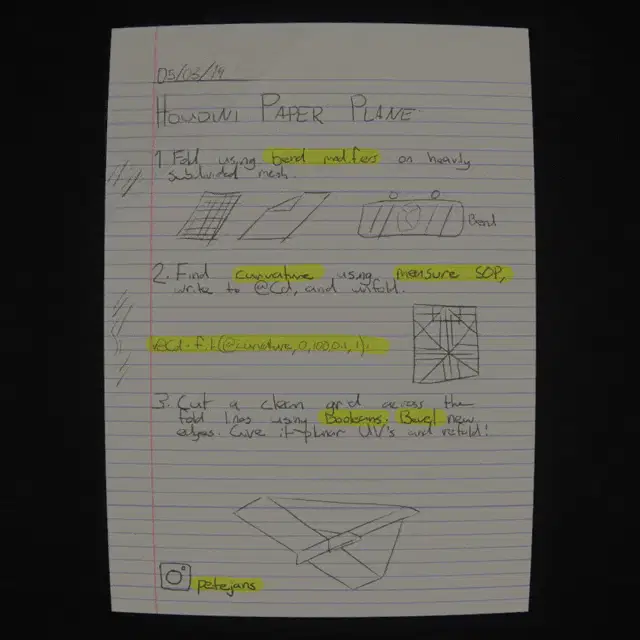 05/03/19
HOUDINI PAPER PLANE
1. Fold using bend modifiers on heavily
subdivided mesh.
Bend
2. Find curvature using measure SOP,
write to @Cd, and unfold.
3. Cut a clean grid across the
fold lines using Booleans. Bevel new
edges. Give it planar UV's and refold!
petejans